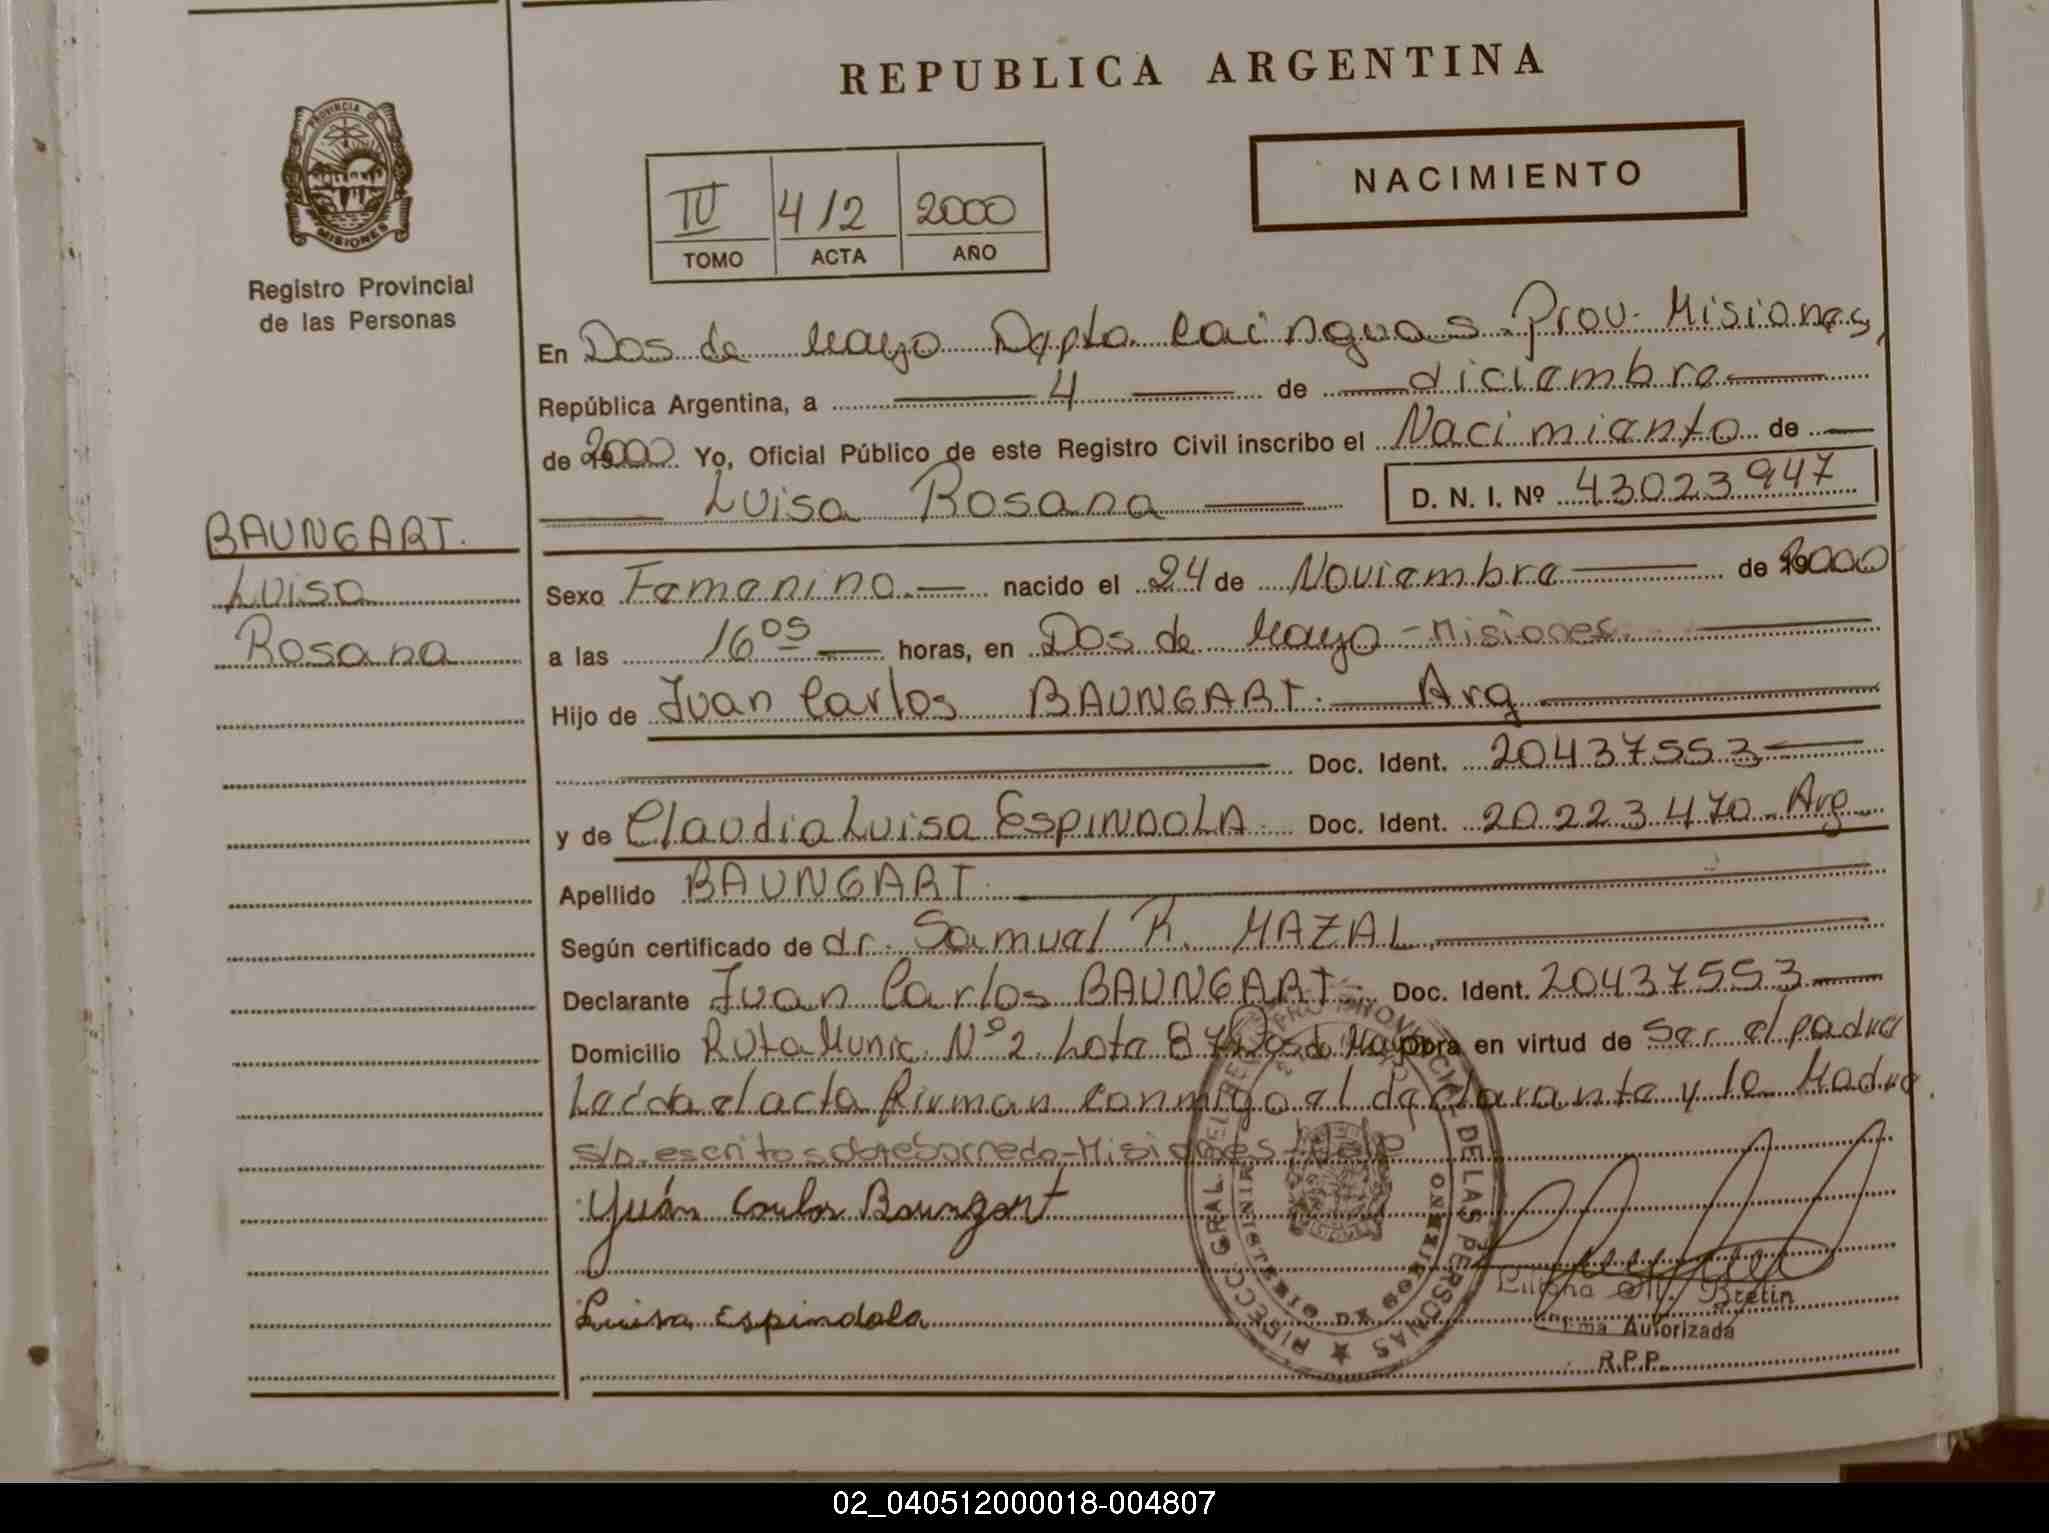 REPUBLICA ARGENTINA
PROVINCIA DE
MISIONES
Registro Provincial
de las Personas
IV 412 2000
TOMO ACTA AÑO
NACIMIENTO
En Dos de Mayo Dpto. Cainguas. Prov. Misiones,
República Argentina, a 4 de diciembre
de 2000 Yo, Oficial Público de este Registro Civil inscribo el Nacimiento de
Luisa Rosana D. N. I. Nº 43023947
BAUNGART.
Luisa
Rosana
Sexo Femenino. nacido el 24 de Noviembre de 2000
a las 16 05 horas, en Dos de Mayo - Misiones.
Hijo de Juan Carlos BAUNGART. Arg
Doc. Ident. 20437553
y de Claudia Luisa ESPINDOLA Doc. Ident. 20223470 - Arg
Apellido BAUNGART.
Según certificado de dr. Samuel R. MAZAL
Declarante Juan Carlos BAUNGART - Doc. Ident. 20437553
Domicilio Ruta Munic. Nº 2 Lote 87 Dos de Mayo Obra en virtud de Ser el padre
Leída el acta firman conmigo el declarante y la Madre
s/p. escritos sobreborrado - Misiones - Vale
Juán Carlos Baungart
Luisa Espindola
DIRECC. GRAL. DEL REGISTRO PROVINCIAL DE LAS PERSONAS
MINISTERIO DE GOBIERNO
Liliana M. Bretin
Firma Autorizada
R.P.P.
02_040512000018-004807